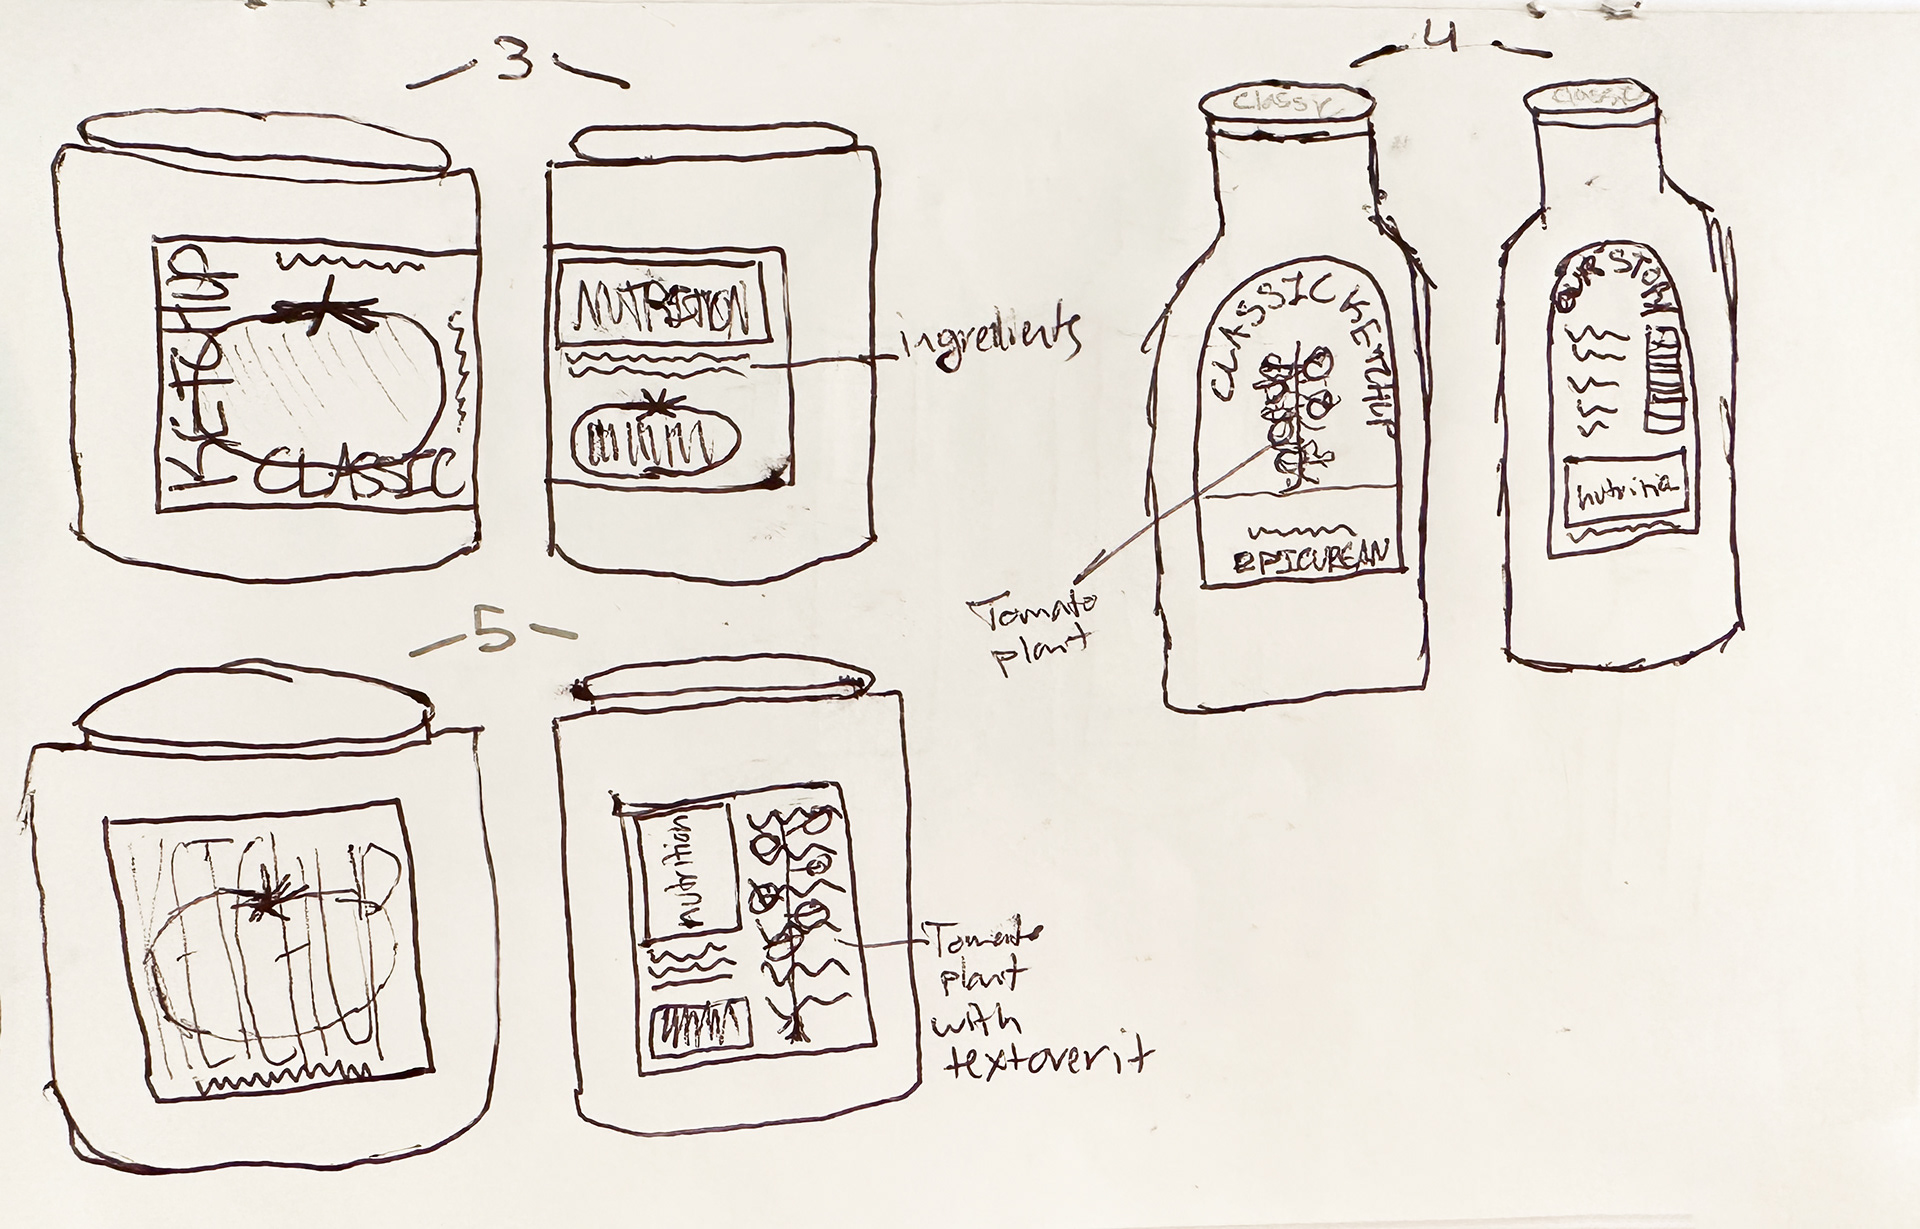 3
KETCHUP
CLASSIC
NUTRITION
ingredients
4
Classic
CLASSIC KETCHUP
EPICUREAN
Tomato
plant
Classic
OUR STORY
5
KETCHUP
nutrition
Tomato
plant
with
text over it